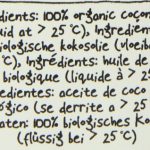 dients: 100% organic cocon
uid at > 25 °C), Ingredien
biologische kokosolie (vloeib
°C), Ingrédients: huile de
biologique (liquide à > 25
edientes: aceite de coco
ógico (se derrite a > 25
aten: 100% biologisches Ko
(flüssig bei > 25 °C)